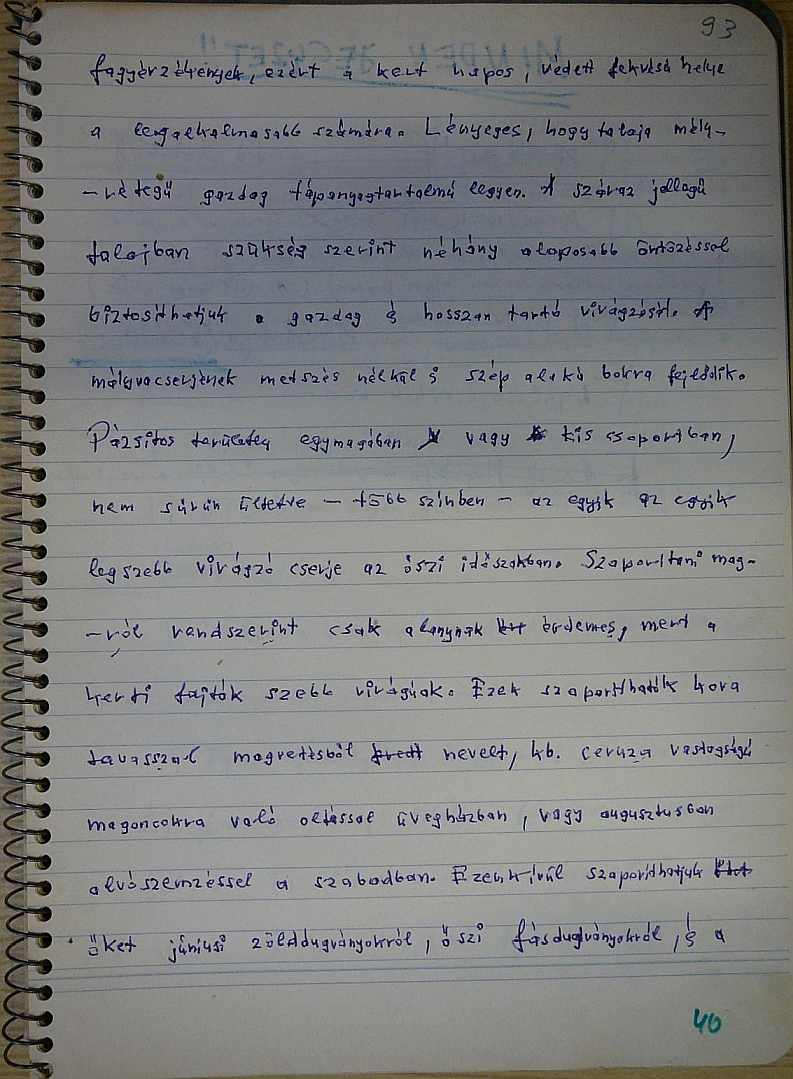 93
fagyérzékenyek, ezért a kert napos, védett fekvésű helye
a legalkalmasabb számára. Lényeges, hogy talaja mély-
-rétegű gazdag tápanyagtartalmú legyen. A száraz jellegű
talajban szükség szerint néhány alaposabb öntözéssel
biztosíthatjuk a gazdag és hosszan tartó virágzást. A
mályvacserjének metszés nélkül is szép alakú bokra fejlődik.
Pázsitos területen egymagában vagy kis csoportban,
nem sűrűn ültetve - több színben - az egyik az egyik
legszebb virágzó cserje az őszi időszakban. Szaporítani mag-
-ról rendszerint csak alanynak érdemes, mert a
kerti fajták szebb virágúak. Ezek szaporíthatók kora
tavasszal magvetésből nevelt, kb. ceruza vastagságú
magoncokra való oltással üvegházban, vagy augusztusban
alvószemzéssel a szabadban. Ezenkívül szaporíthatjuk
őket júniusi zölddugványokról, őszi fásdugványokról, és a
40